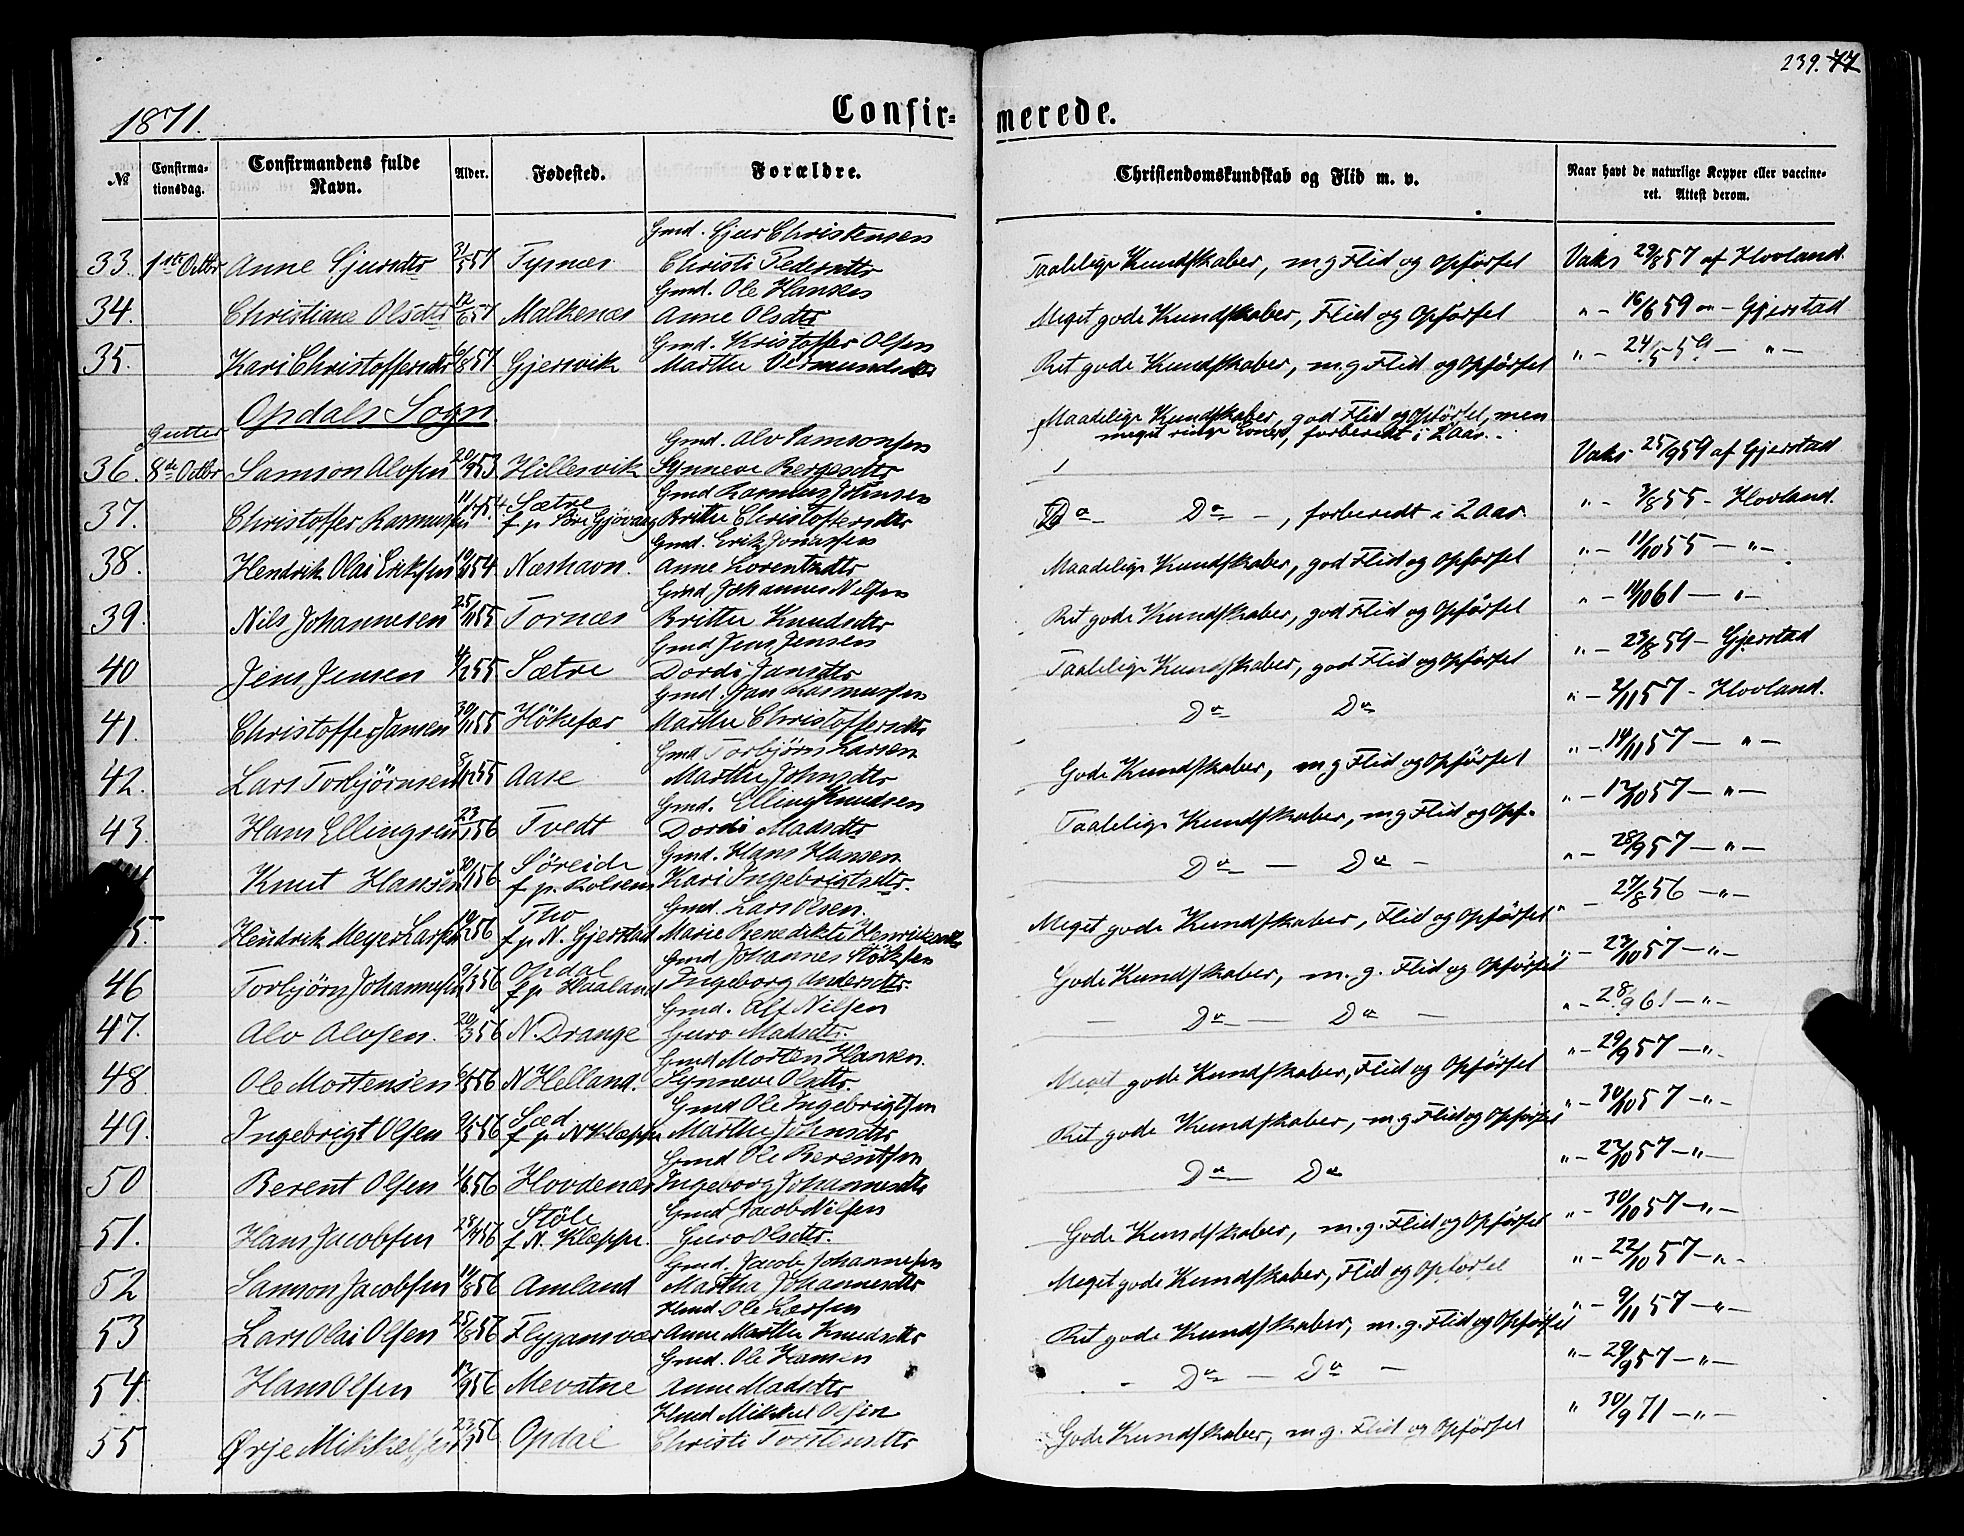 239. 77
1871.
Confirmerede.
№ Confirmationsdag. Confirmandens fulde Navn. Alder. Fødested. Forældre. Christendomskundskab og Flid m. v. Naar havt de naturlige Kopper eller vaccineret. Attest derom.
Gmd. Sjur Christensen
33. 1ste Octbr Anne Sjursdtr 31/3 57 Tysnæs Christi Pedersdtr Taalelige Kundskaber, m g Flid og Opførsel Vaks 29/8 57 af Hovland.
Gmd. Ole Hansen
34. Christiane Olsdtr Malkenæs Anne Olsdtr Meget gode Kundskaber, Flid og Opførsel " - 16/6 59 " - Gjerstad
Gmd. Kristoffer Olsen
35. Kari Christoffersdtr 6/8 57 Gjersvik Marthe Vermundsdtr Ret gode Kundskaber, m.g Flid og Opførsel " - 24/5 59 - " -
Opdals Sogn.
Gutter
Maadelige Kundskaber, god Flid og Opførsel, men
Gmd. Alv Samsonsen meget ringe Evner, forberedt i 2 Aar.
36. 8de Octbr Samson Alvsen 20/9 53 Hillesvik Synneve Bergesdtr Vaks 25/9 59 af Gjerstad
Gmd Rasmus Johnsen
37. Christoffer Rasmussen Sætre f. p. Gjøvaag Brithe Christoffersdtr Do Do -, forberedt i 2 Aar " - 3/8 55 - Hovland.
Gmd. Erik Jonassen
38. Hendrik Olai Eriksen 19/10 54 Næshavn. Anne Lorentsdtr Maadelige Kundskaber, god Flid og Opførsel " - 11/10 55 - " -
Gmd Johannes Nilsen
39. Nils Johannesen 25/11 55 Tornæs Brithe Knudsdtr Ret gode Kundskaber, god Flid og Opførsel " - 14/10 61 - " -
Gmd Jens Jensen
40 Jens Jensen Sætre Dordi Jansdtr Taalelige Kundskaber, god Flid og Opførsel " - 23/8 59 - Gjerstad
Gmd. Jan Rasmussen
41. Christoffer Jansen 30/11 55 Høkefær Marthe Christoffersdtr Do Do " - 2/11 57 - Hovland.
Gmd Torbjørn Larsen
42. Lars Torbjørnsen 5/12 55 Aase Marthe Johnsdtr Gode Kundskaber, m g Flid og Opførsel " - 14/11 57 - " -
Gmd. Elling Knudsen
43. Hans Ellingsen 23/1 56 Tvedt Dordi Madsdtr Taalelige Kundskaber, m g Flid og Opf. " - 17/10 57 - " -
Gmd. Hans Hansen
Knut Hansen 30/1 56 Søreide f. p. Rolsenes Kari Ingebrigtsdtr. Do - Do - " - 28/9 57 - " -
Gmd. Lars Olsen.
5. Hendrik Meyer Larsen 19/2 56 Tho f. p. N. Gjerstad Marie Benedikte Henriksdtr Meget gode Kundskaber, Flid og Opførsel " - 27/8 56 - " -
Gmd Johannes
46 Torbjørn Johannessen 9/3 56 Opdal f. p. Haaland Ingeborg Andersdtr. Gode Kundskaber, m. g. Flid og Opførsel " - 23/10 57 - " -
Gmd. Alf Nilsen
47. Alv Alvsen. 20/3 56 N. Drange Guro Madsdtr. - Do - Do - " - 28/9 61 - " -
Gmd Morten Hansen.
48 Ole Mortensen 6/5 56 N Helland. Synneve Olsdtr. Meget gode Kundskaber, Flid og Opførsel " - 29/9 57 - " -
Gmd Ole Ingebrigtsen
49. Ingebrigt Olsen 9/5 56 Sæd f. p. N Kleppe Marthe Johnsdtr Ret gode Kundskaber, m. g Flid og Opførsel " - 30/10 57 - " -
Gmd Ole Berentsen
50 Berent Olsen 1/6 56 Hovdenæs Ingeborg Johannesdtr Do - Do " - 27/10 57 - " -
Gmd Jacob Nilsen
51. Hans Jacobsen 28/7 56 Støle f. N. Kleppe. Guro Olsdtr. Gode Kundskaber, m. g. Flid og Opførsel " - 30/10 57 - " -
Gmd. Jacob Johannesen
52 Samson Jacobsen 11/8 56 Amland Martha Johannesdtr Meget gode Kundskaber, Flid og Opførsel " - 22/10 57 - " -
Hmd. Ole Larsen
53 Lars Olai Olsen 25/8 56 Flygansvær Anne Marthe Knudsdtr Ret gode Kundskaber, m. g. Flid og Opførsel " - 9/11 57 - " -
Gmd. Ole Hansen
54. Hans Olsen 17/9 56 Mevatne Anne Madsdtr - Do - Do - " - 29/9 57 - " -
Hmd Mikkel Olsen
55 Ørje Mikkelsen Opdal Christi Torstensdtr Gode Kundskaber, m. g. Flid og Opførsel " 30/9 71 - " -